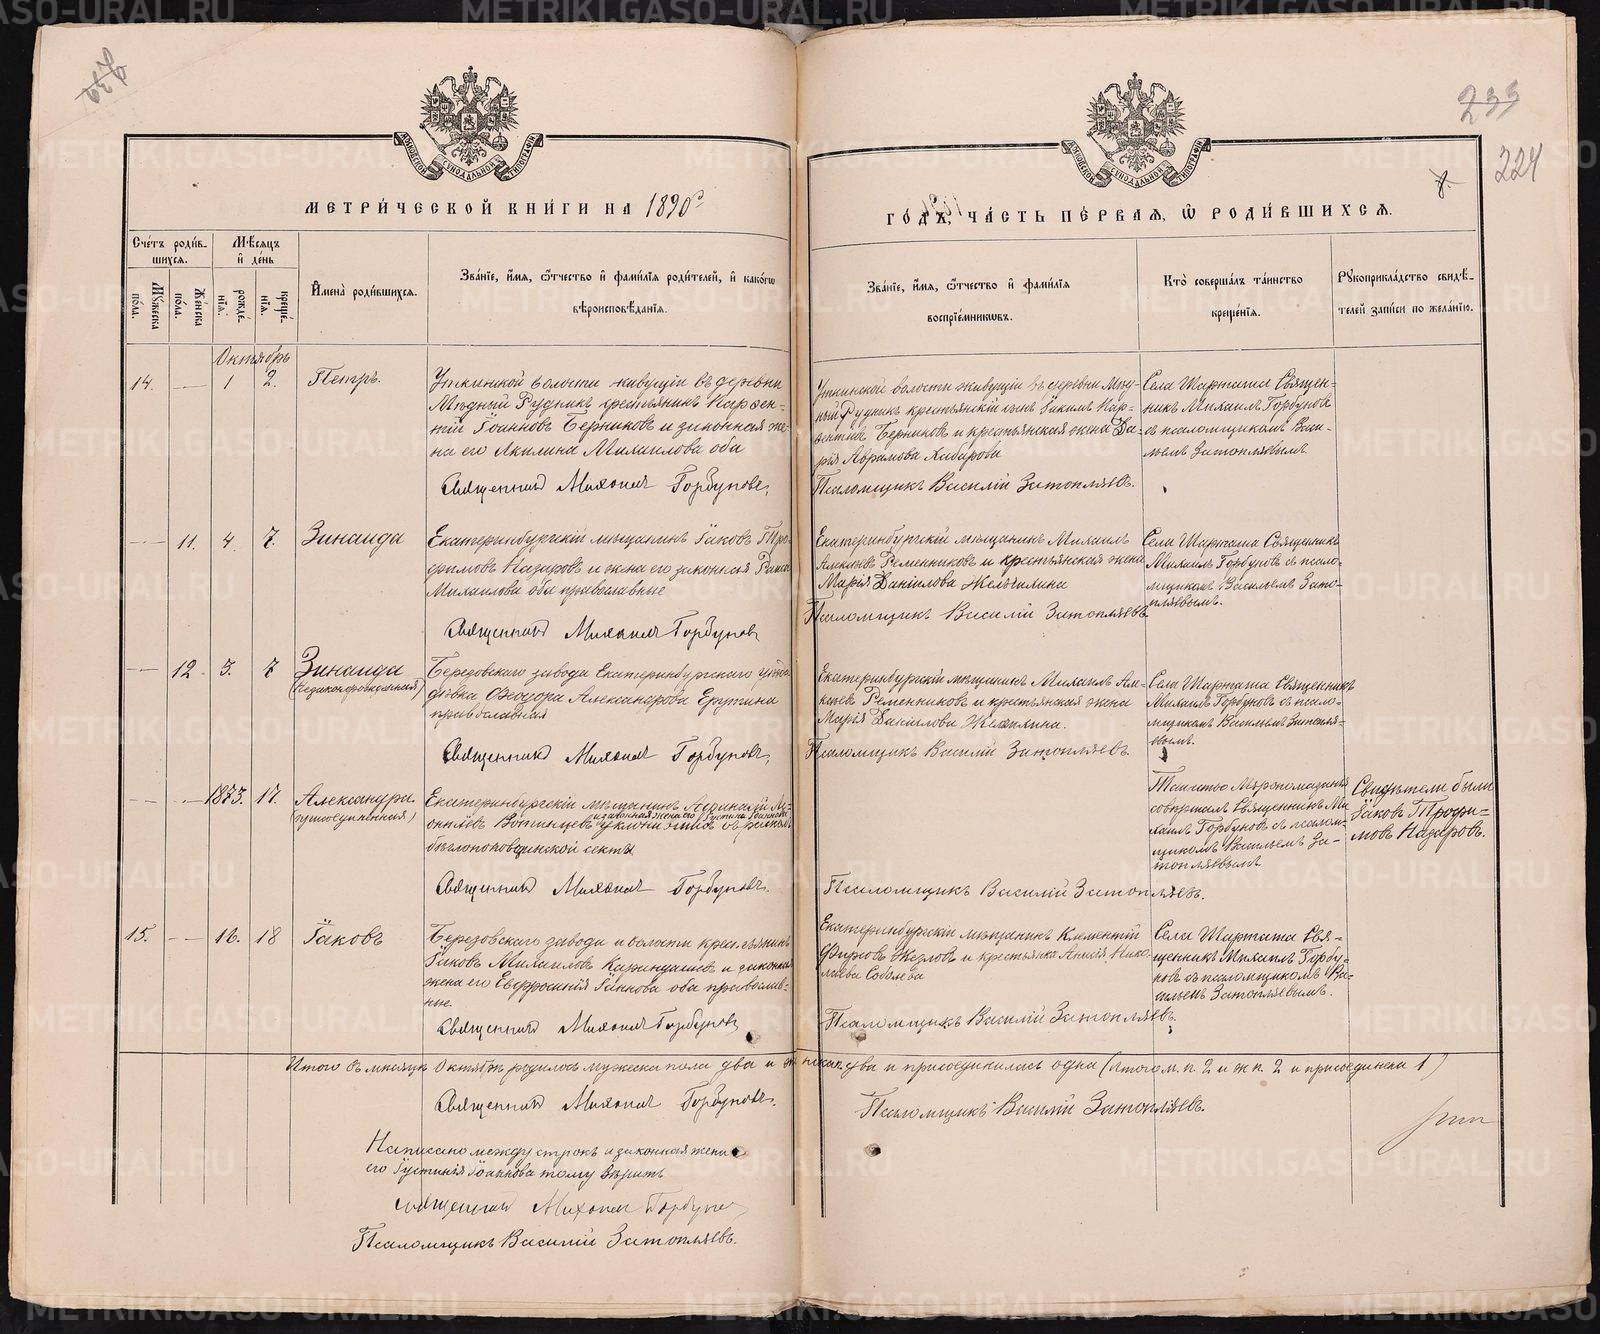 233
224
МЕТРИЧЕСКОЙ КНИГИ НА 1890
ГОДЪ, ЧАСТЬ ПЕРВАЯ, Ѡ РОДИВШИХСЯ.
Счетъ родив-
шихся.
Мѣсяцъ
и день
Мужеска пола.
Женска пола.
рожде-
нія.
креще-
нія.
Имена родившихся.
Званіе, имя, ѿчество и фамилія родителей, и какогѡ
вѣроисповѣданія.
Званіе, имя, ѿчество и фамилія
воспріемниковъ.
Кто совершалъ таинство
крещенія.
Рукоприкладство свидѣ-
телей записи по желанію.
Октябрь
14. 1 2. Петръ.
Уткинской волости живущій въ деревни
Мѣдный Рудникъ крестьянинъ Парфен-
тій Іоанновъ Берниковъ и законная же-
на его Акилина Михаилова оба
Священникъ Михаилъ Горбуновъ.
Уткинской волости живущій въ деревни Мѣд-
ный Рудникъ крестьянскій сынъ Іакимъ Пар-
фентіевъ Берниковъ и крестьянская жена Да-
рія Абрамова Хабарова
Псаломщикъ Василій Затопляевъ.
Села Шарташа Священ-
никъ Михаилъ Горбуновъ
съ псаломщикомъ Васи-
льемъ Затопляевымъ
11. 4. 7. Зинаида
Екатеринбургскій мѣщанинъ Іаковъ Тро-
фимовъ Назаровъ и жена его законная Раиса
Михаилова оба православные
Священникъ Михаилъ Горбуновъ
Екатеринбургскій мѣщанинъ Михаилъ
Алексѣевъ Ременниковъ и крестьянская жена
Марія Даніилова
Псаломщикъ Василій Затопляевъ
Села Шарташа Священникъ
Михаилъ Горбуновъ съ псало-
мщикомъ Васильемъ Зато-
пляевымъ.
12. 3. 7 Зинаида
(незаконорожденная)
Березовскаго завода Екатеринбургскаго уѣзда
дѣвка Ѳеодора Александрова Ерутина
православная
Священникъ Михаилъ Горбуновъ.
Екатеринбургскій мѣщанинъ Михаилъ Але-
ксѣевъ Ременниковъ и крестьянская жена
Марія Даніилова
Псаломщикъ Василій Затопляевъ.
Села Шарташа Священникъ
Михаилъ Горбуновъ съ псало-
мщикомъ Васильемъ Затопля-
евымъ.
1873. 17. Александра.
(присоединенная)
Екатеринбургскій мѣщанинъ
и законная жена его Іустина Іоаннова
бѣглопоповщинской секты
Священникъ Михаилъ Горбуновъ.
Псаломщикъ Василій Затопляевъ.
Таинство Мѵропомазанія
совершалъ Священникъ Ми-
хаилъ Горбуновъ съ псалом-
щикомъ Васильемъ За-
топляевымъ
Свидѣтели были
Іаковъ Трофи-
мовъ Назаровъ.
15. 16. 18 Іаковъ
Березовскаго завода и волости крестьянинъ
Іаковъ Михаиловъ и законная
жена его Евфросинія Іоаннова оба православ-
ные.
Священникъ Михаилъ Горбуновъ
Екатеринбургскій мѣщанинъ Климентій
и крестьянка Анисія Нико-
лаева Соболева
Псаломщикъ Василій Затопляевъ.
Села Шарташа Свя-
щенникъ Михаилъ Горбу-
новъ съ псаломщикомъ Ва-
сильемъ Затопляевымъ.
Итого въ мѣсяцѣ Октябрѣ родилось мужеска пола два и женска два и присоединилась одна (Итого м. п. 2 и ж п. 2 и присоединена 1)
Священникъ Михаилъ Горбуновъ.
Псаломщикъ Василій Затопляевъ.
Написано между строкъ и законная жена
его Іустинія Іоаннова тому вѣрить
Священникъ Михаилъ Горбуновъ
Псаломщикъ Василій Затопляевъ.
METRIKI.GASO-URAL.RU